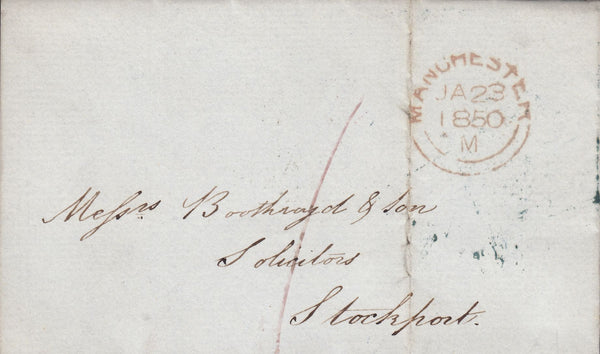 MANCHESTER
JA 23
1850
M
Messrs Boothroyd & Son
Solicitors
Stockport.